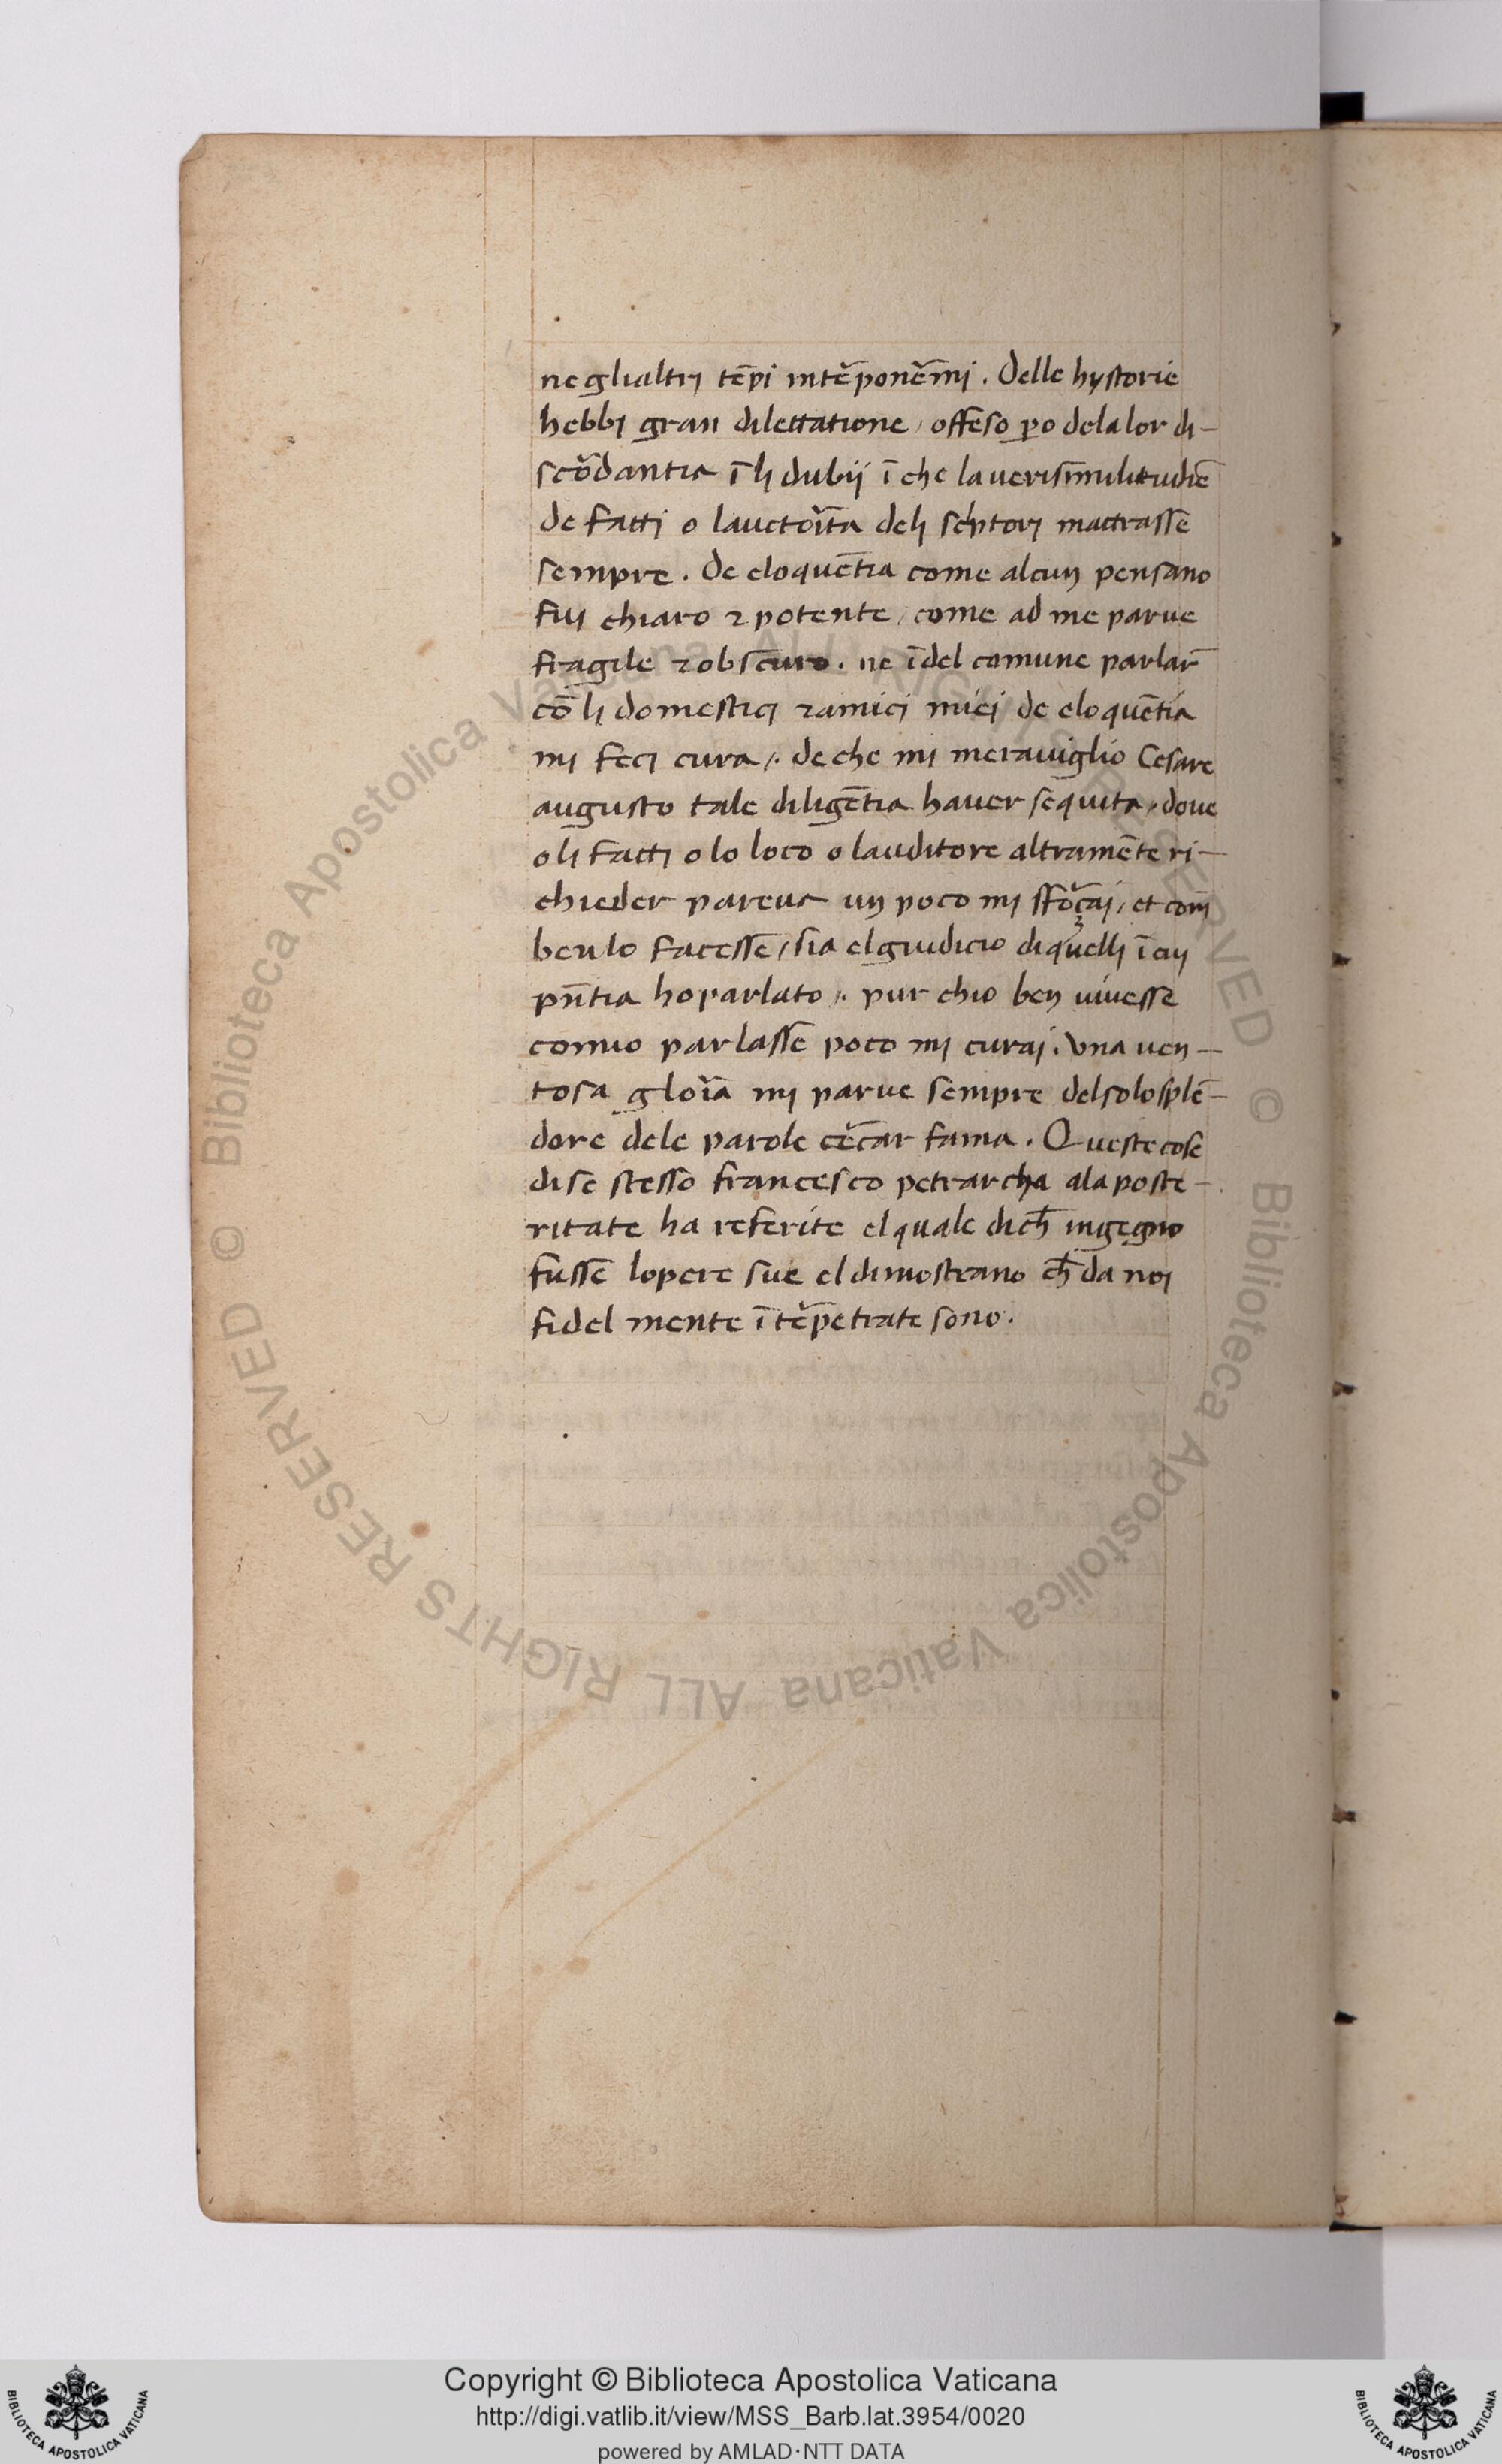 neglialtrj tēpi intēponēmj. Delle hystorie
hebbj gran dilettatione / offeso ꝑo dela lor di-
scōdantia ī lj dubij ī che la uerisīmilitudiē
de fattj o lauctoīta delj sc'ptorj mattrassē
sempre. De eloquētia come alcunj pensano
fuj chiaro ⁊ potente / come ad me parue
fragile ⁊ obscuro. ne īdel comune parlar̄
cō lj domesticj ⁊ amicj miei de eloquētia
mj fecj cura /. de che mi merauiglio Cesare
augusto tale diligētia hauer sequita / doue
o lj fattj o lo loco o lauditore altramēte ri-
chieder pareua un poco mj sforçaj / et com
ben lo facessē / sia el giudicio di quellj ī cuj
pn̄tia ho parlato /. pur chio ben uiuesse
comio parlassē poco mj curaj. Una uen-
tosa gloīa mj parue sempre del solo splē-
dore dele parole cēcar fama. Queste cose
di se stesso francesco petrarcha ala poste-
ritate ha referite el quale di ch̄ ingegno
fussē lopere sue el dimostrano ch̄ da noj
fidel mente ītēp̄etrate sono.
Copyright © Biblioteca Apostolica Vaticana
http://digi.vatlib.it/view/MSS_Barb.lat.3954/0020
powered by AMLAD·NTT DATA
BIBLIOTECA APOSTOLICA VATICANA
BIBLIOTECA APOSTOLICA VATICANA
© Biblioteca Apostolica Vaticana ALL RIGHTS RESERVED
© Biblioteca Apostolica Vaticana ALL RIGHTS RESERVED